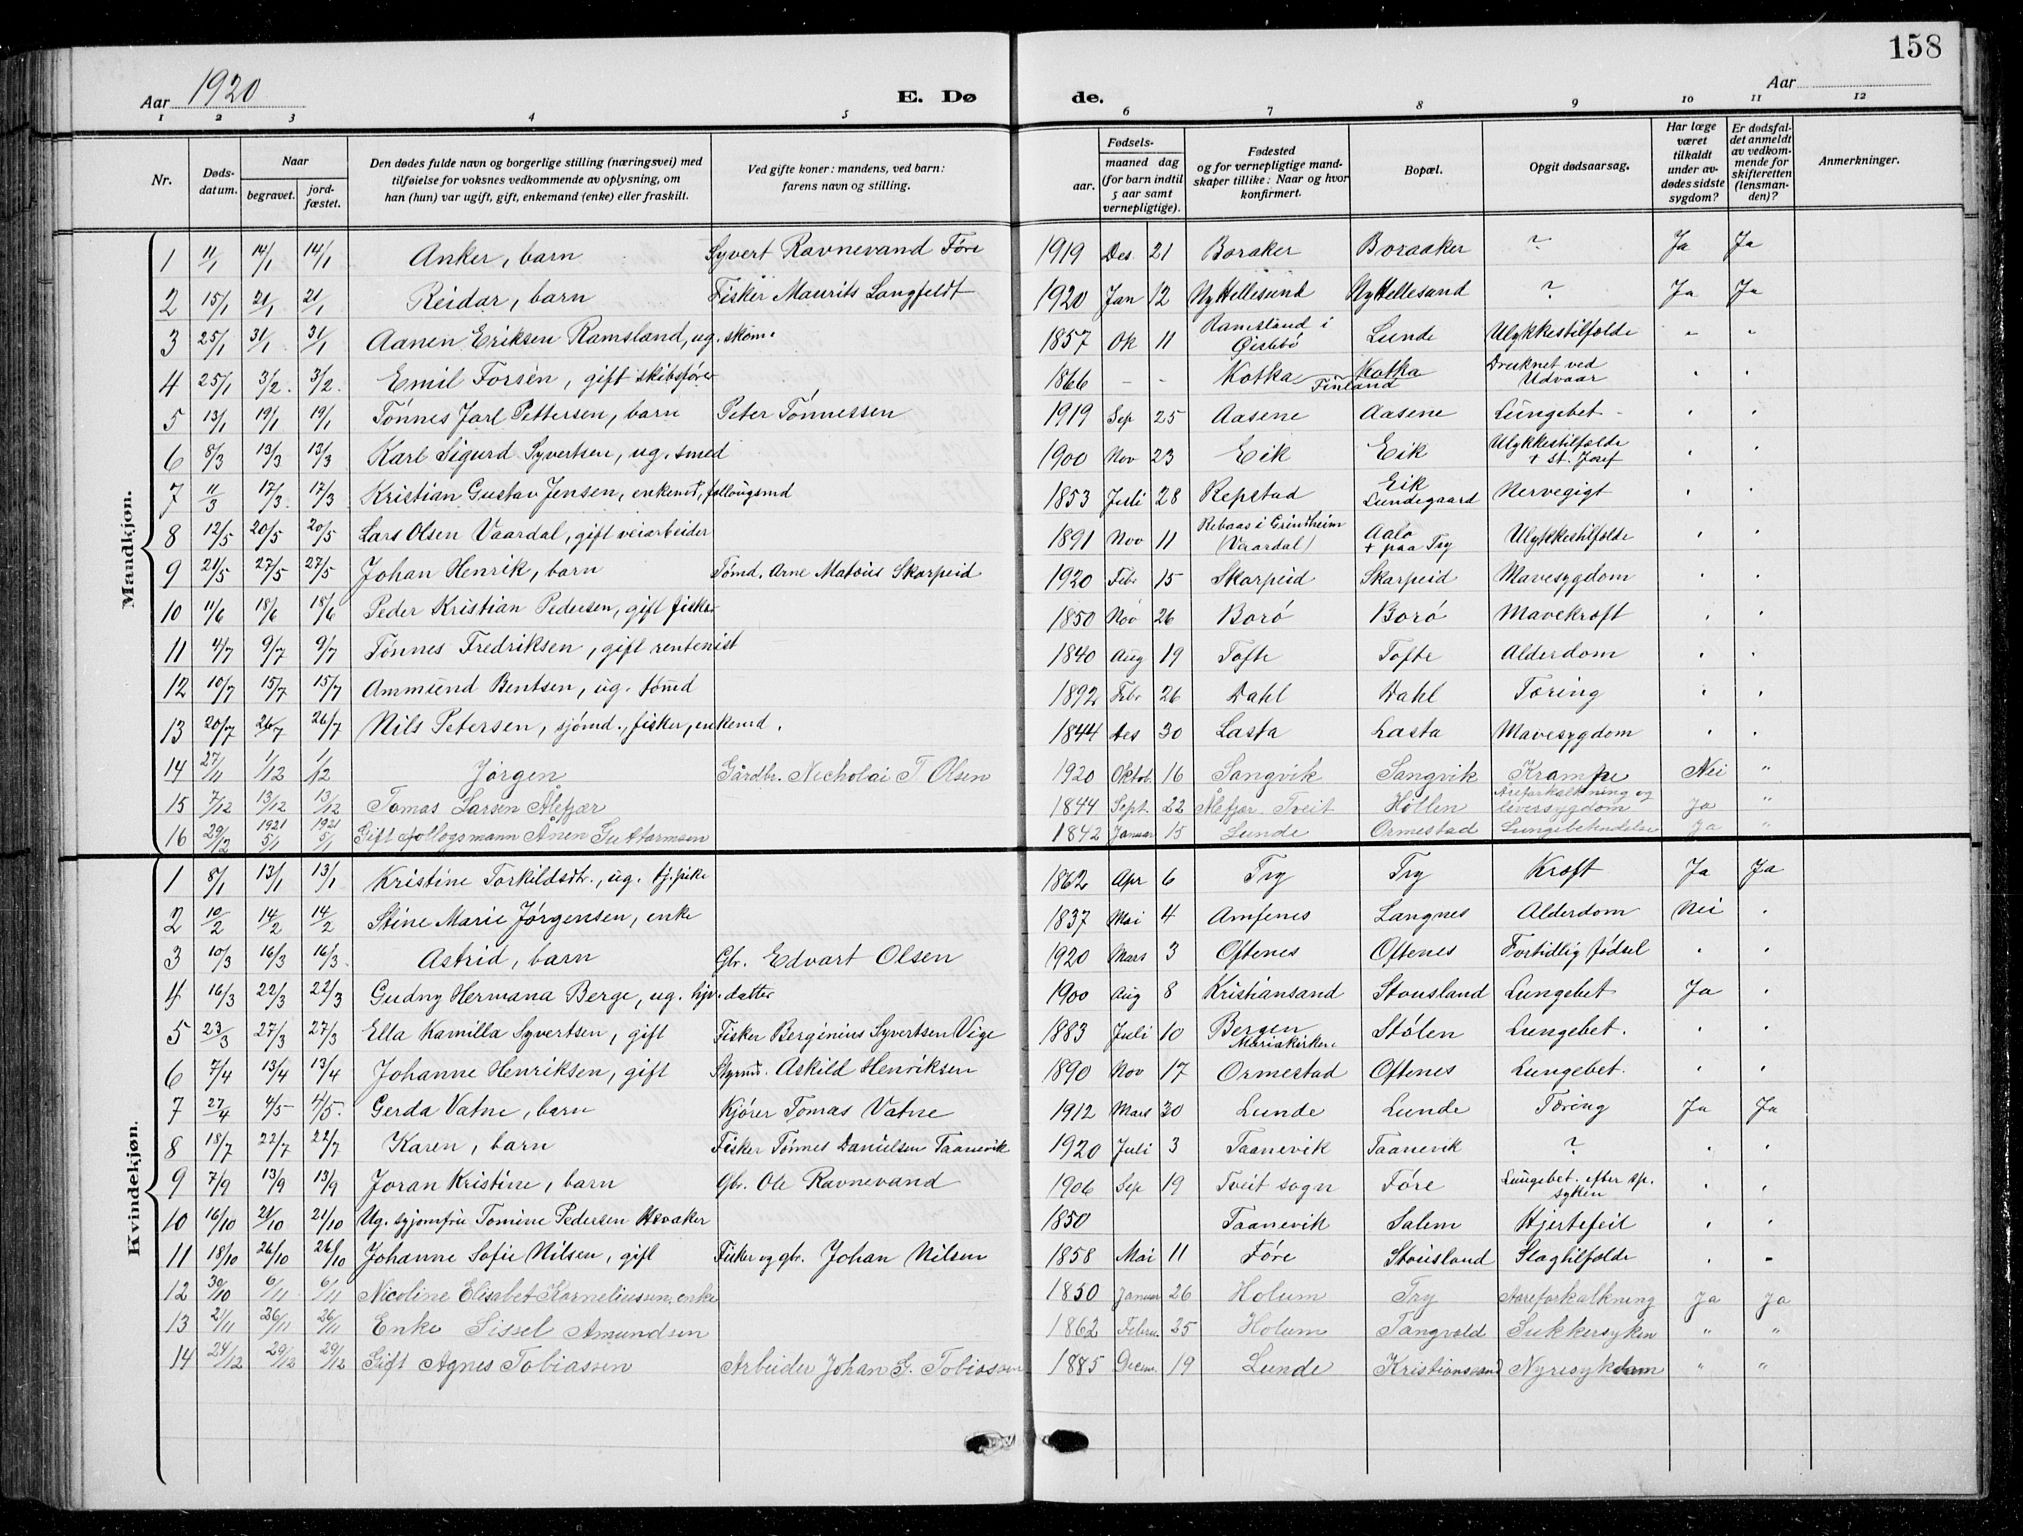 158
Aar 1920
E. Dø
de.
Aar
1 2 3 4 5 6 7 8 9 10 11 12
Nr.
Døds-
datum.
Naar
begravet.
jord-
fæstet.
Den dødes fulde navn og borgerlige stilling (næringsvei) med
tilføielse for voksnes vedkommende av oplysning, om
han (hun) var ugift, gift, enkemand (enke) eller fraskilt.
Ved gifte koner: mandens, ved barn:
farens navn og stilling.
Fødsels-
aar.
maaned dag
(for barn indtil
5 aar samt
vernepligtige).
Fødested
og for vernepligtige mand-
skaper tillike: Naar og hvor
konfirmert.
Bopæl.
Opgit dødsaarsag.
Har læge
været
tilkaldt
under av-
dødes sidste
sygdom?
Er dødsfal-
det anmeldt
av vedkom-
mende for
skifteretten
(lensman-
den)?
Anmerkninger.
Mandkjøn.
1 11/1 14/1 14/1 Anker, barn Syvert Ravnevand Føre 1919 Des 21 Boraker Boraaker ? Ja Ja
2 15/1 21/1 21/1 Reidar, barn Fisker Maurits Langfeldt 1920 Jan 12 Ny Hellesund Ny Hellesund ? Ja Ja
3 25/1 31/1 31/1 Aanen Eriksen Ramsland, ug. skom. 1857 Ok 11 Ramsland i Øislebö Lunde Ulykkestilfolde " "
4 25/1 3/2. 3/2. Emil Forsén, gift skibsfører 1866 - - Kotka Finland Kotka Drucknet ved Udvaar " "
5 13/1 19/1 19/1 Tönnes Jarl Pettersen, barn Peter Tönnessen 1919 Sep 25 Aasene Aasene Lungebet - " "
6 8/3 13/3 13/3 Karl Sigurd Syvertsen, ug. smed 1900 Nov 23 Eik Eik Ulykkestilfolde + St. Josef " "
7 11/3 17/3 17/3 Kristian Gustav Jensen, enkemd, follougsmd 1853 Juli 28 Repstad Eik Lundegaard Nervegigt " "
8 12/5 20/5 20/5 Lars Olsen Vaardal, gift veiarbeider 1891 Nov 11 Rebaas i Grindheim (Vaardal) Aalo + paa Try Ulykkestilfolde " "
9 21/5 27/5 27/5 Johan Henrik, barn Tömd. Arne Matöus Skarpeid 1920 Febr 15 Skarpeid Skarpeid Mavesygdom " "
10 11/6 18/6 18/6 Peder Kristian Pedersen, gift fisker 1850 Nov 26 Borö Borö Mavekroft " "
11 4/7 9/7 9/7 Tönnes Fredriksen, gift rentenist 1840 Aug 19 Tofte Tofte Alderdom " "
12 10/7 15/7 15/7 Ammund Bentsen, ug. tömd 1892 Febr 26 Dahl Dahl Tæring " "
13 20/7 26/7 26/7 Nils Petersen, sjömd., fisker, enkemd. 1844 Des 30 Lasta Lasta Mavesygdom " "
14 27/11 1/12 1/12 Jørgen Gårdbr. Nicholai T. Olsen 1920 Oktob. 16 Sangvik Sangvik Krampe Nei "
15 7/12 13/12 13/12 Tomas Larsen Ålefjær 1844 Sept. 22 Ålefjær Tveit Höllen Åreforkalkning og liversygdom Ja "
16 29/12 1921 5/1 1921 5/1 Gift follogsmann Ånen Guttormsen 1842 Januar 15 Lunde Ormestad Lungebetendelse Ja "
Kvindekjøn.
1 8/1 13/1 13/1 Kristine Torkildsdtr., ug. tj. pike 1862 Apr 6 Try Try Kroft Ja Ja
2 10/2 14/2 14/2 Stine Marie Jørgensen, enke 1837 Mai 4 Amfenes Langnes Alderdom Nei "
3 10/3 16/3 16/3 Astrid, barn Gbr. Edvart Olsen 1920 Mars 3 Oftenes Oftenes Fortidlig födsel " "
4 16/3 22/3 22/3 Gudny Hermana Berge, ug. hjv. datter 1900 Aug 8 Kristiansand Stousland Lungebet Ja "
5 23/3 27/3 27/3 Ella Kamilla Syvertsen, gift Fisker Berginius Syvertsen Vige 1883 Juli 10 Bergen Mariakirken Stölen Lungebet. " "
6 7/4 13/4 13/4 Johanne Henriksen, gift Styrmd. Askild Henriksen 1890 Nov 17 Ormestad Oftenes Lungebet. " "
7 27/4 4/5 4/5. Gerda Vatne, barn Kjörer Tomas Vatne 1912 Mars 30 Lunde Lunde Tæring Ja Ja
8 18/7 22/7 22/7 Karen, barn Fisker Tönnes Danielsen Taanevik 1920 Juli 3 Taanevik Taanevik ? " "
9 7/9 13/9 13/9 Joran Kristine, barn Gbr. Ole Ravnevand 1906 Sep 19 Tveit sogn Føre Lungebet. efter sp. syken " "
10 16/10 21/10 21/10 Ug. syjomfru Tomine Pedersen 1850 Taanevik Salem Hjertefeil " "
11 18/10 26/10 26/10 Johanne Sofie Nilsen, gift Fisker og gbr. Johan Nilsen 1858 Mai 11 Føre Stousland Slagtilfolde " -
12 30/10 6/11 6/11 Nicoline Elisabet Korneliussen, enke 1850 Januar 26 Holum Try Aareforkalkning Ja Ja
13 21/11 26/11 26/11 Enke Sissel Amundsen 1862 Febru. 25 Holum Tangvold Sukkersyken " "
14 24/12 29/12 29/12 Gift Agnes Tobiassen Arbeider Johan S. Tobiassen 1885 Decem. 19 Lunde Kristiansand Nyresykdom " "